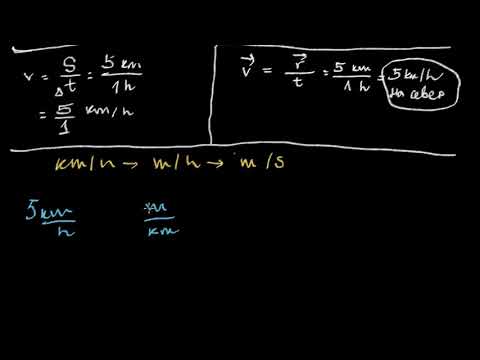 v = S/Δt = 5 km/1 h
= 5/1 km/h
v⃗ = r⃗/t = 5 km/1 h = 5 km/h
на север
km/h → m/h → m/s
5 km/h m/km